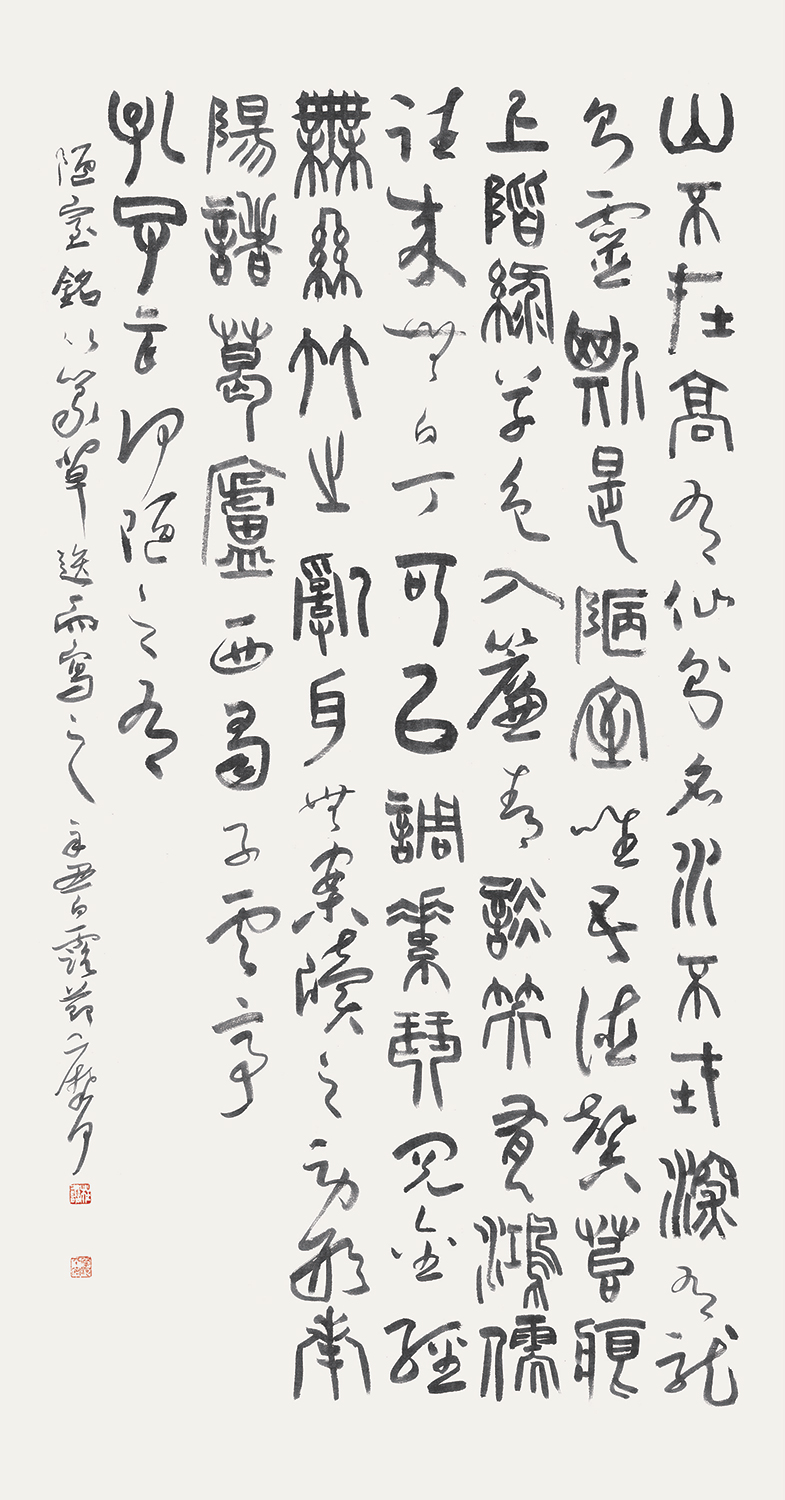 山不在高有仙則名水不在深有龍
則靈斯是陋室唯吾德馨苔痕
上階綠草色入簾青談笑有鴻儒
往來無白丁可以調素琴閱金經
無絲竹之亂耳無案牘之勞形南
陽諸葛廬西蜀子雲亭
孔子云何陋之有
陋室銘以篆草迭而寫之辛丑白露節